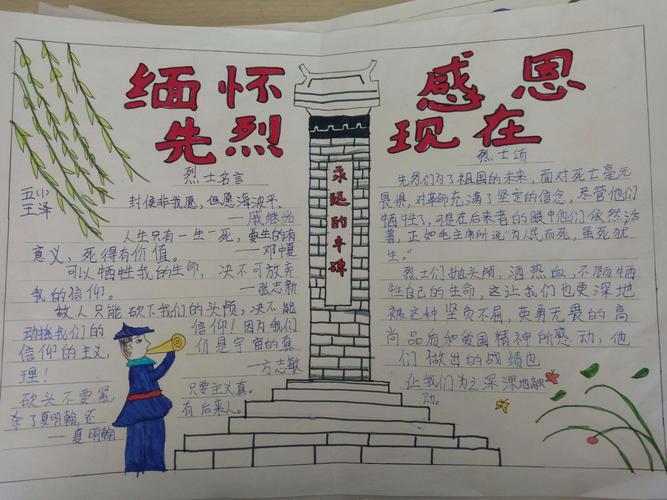 缅怀
先烈
感恩
现在
五小
王泽
烈士名言
封侯非我愿,但愿海波平。
—戚继光
人生只有一生一死,要生的有
意义,死得有价值。 —邓中夏
可以牺牲我的生命,决不可放弃
我的信仰。 —张志新
敌人只能砍下我们的头颅,决不能
动摇我们的信仰!因为我们
信仰的主义,乃是宇宙的真
理! —方志敏
砍头不要紧 只要主义真。
杀了夏明翰,还有后来人。
—夏明翰
永远的丰碑
烈士颂
先烈们为了祖国的未来,面对死亡毫无
畏惧,对革命充满了坚定的信念,尽管他们
牺牲了,可是在后来者的眼中他们依然活
着,正如毛主席所说"为人民而死,虽死犹
生。"
烈士们抛头颅,洒热血,不惜牺
牲自己的生命,这让我们也更深地
被这种坚贞不屈,英勇无畏的高
尚品质和爱国精神所感动,他
们做出的成绩也
让我们为之深深地触
动。